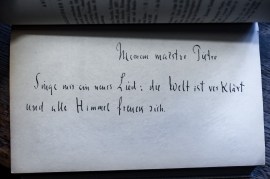 Meinem maëstro Pietro
Singe mir ein neues Lied: die Welt ist verklärt
und alle Himmel freuen sich.